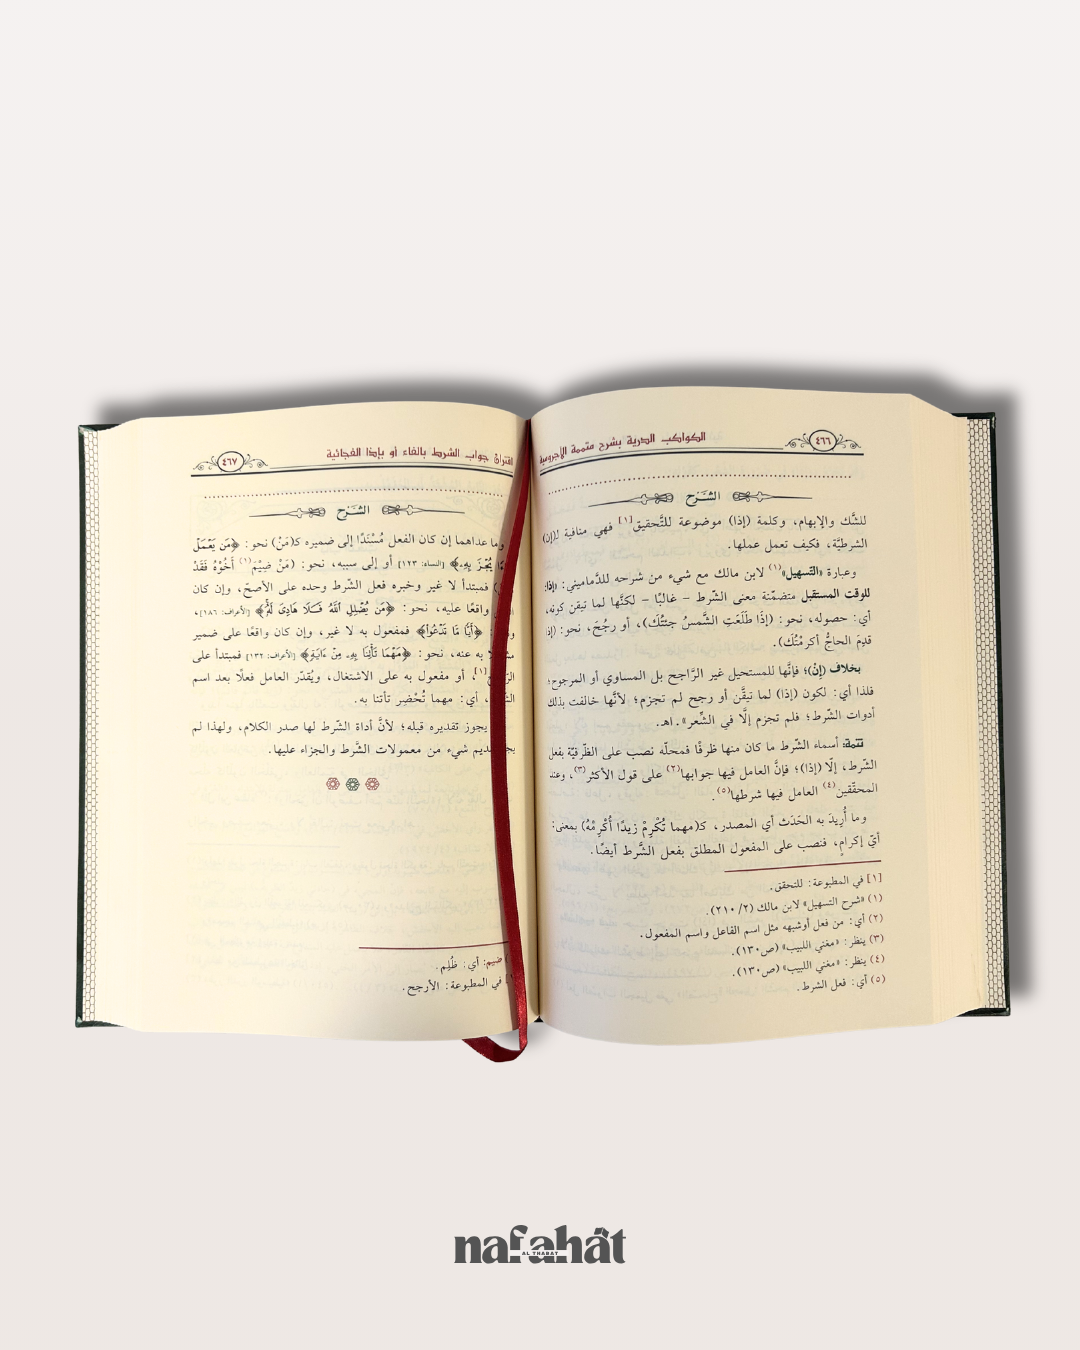 ٤٦٦
الكواكب الدرية بشرح متممة الآجرومية
الشرح
للشَّك والإبهام، وكلمة (إذا) موضوعة للتَّحقيق[١] فهي منافية لـ(إن)
الشرطيَّة، فكيف تعمل عملها.
وعبارة «التَّسهيل»(١) لابن مالك مع شيء من شرحه للدَّماميني: «إذا:
للوقت المستقبل متضمّنة معنى الشّرط - غالبًا - لكنَّها لما تيقن كونه،
أي: حصوله، نحو: (إذَا طَلَعَتِ الشَّمسُ جئتُكَ)، أو رجُحَ، نحو: (إذا
قدِمَ الحاجُّ أكرمْتُك).
بخلاف (إنْ)؛ فإنَّها للمستحيل غير الرَّاجح بل المساوي أو المرجوح؛
فلذا أي: لكون (إذا) لما تيقَّن أو رجح لم تجزم؛ لأنَّها خالفت بذلك
أدوات الشّرط؛ فلم تجزم إلَّا في الشِّعر». اهـ.
تتمة: أسماء الشّرط ما كان منها ظرفًا فمحلّه نصب على الظّرفيّة بفعل
الشّرط، إلّا (إذا)؛ فإنَّ العامل فيها جوابها(٢) على قول الأكثر(٣)، وعند
المحقّقين(٤) العامل فيها شرطها(٥).
وما أُرِيدَ به الحَدَث أي المصدر، كـ(مهما تُكْرِمْ زيدًا أُكْرِمْهُ) بمعنى:
أيّ إكرام، فنصب على المفعول المطلق بفعل الشَّرط أيضًا.
[١] في المطبوعة: للتحقق.
(١) «شرح التسهيل» لابن مالك (٢/ ٢١٠).
(٢) أي: من فعل أوشبهه مثل اسم الفاعل واسم المفعول.
(٣) ينظر: «مغني اللبيب» (ص١٣٠).
(٤) ينظر: «مغني اللبيب» (ص١٣٠).
(٥) أي: فعل الشرط.
اقتران جواب الشرط بالفاء أو بإذا الفجائية
٤٦٧
الشرح
وما عداهما إن كان الفعل مُسْنَدًا إلى ضميره كـ(مَنْ) نحو: ﴿مَن يَعْمَلْ
يُجْزَ بِهِۦ﴾ [النساء: ١٢٣] أو إلى سببه، نحو: (مَنْ ضِيْمَ(١) أَخُوْهُ فَقَدْ
فمبتدأ لا غير وخبره فعل الشّرط وحده على الأصحّ، وإن كان
واقعًا عليه، نحو: ﴿مَن يُضْلِلِ ٱللَّهُ فَلَا هَادِىَ لَهُۥ﴾ [الأعراف: ١٨٦]،
﴿أَيًّا مَّا تَدْعُوا۟﴾ فمفعول به لا غير، وإن كان واقعًا على ضمير
به عنه، نحو: ﴿مَهْمَا تَأْتِنَا بِهِۦ مِنْ ءَايَةٍ﴾ [الأعراف: ١٣٢] فمبتدأ على
[١]، أو مفعول به على الاشتغال، ويُقدّر العامل فعلًا بعد اسم
أي: مهما تُحْضِر تأتنا به.
يجوز تقديره قبله؛ لأنَّ أداة الشّرط لها صدر الكلام، ولهذا لم
شيء من معمولات الشَّرط والجزاء عليها.
ضيم: أي: ظُلِم.
في المطبوعة: الأرجح.
nafahāt
AL THABAT